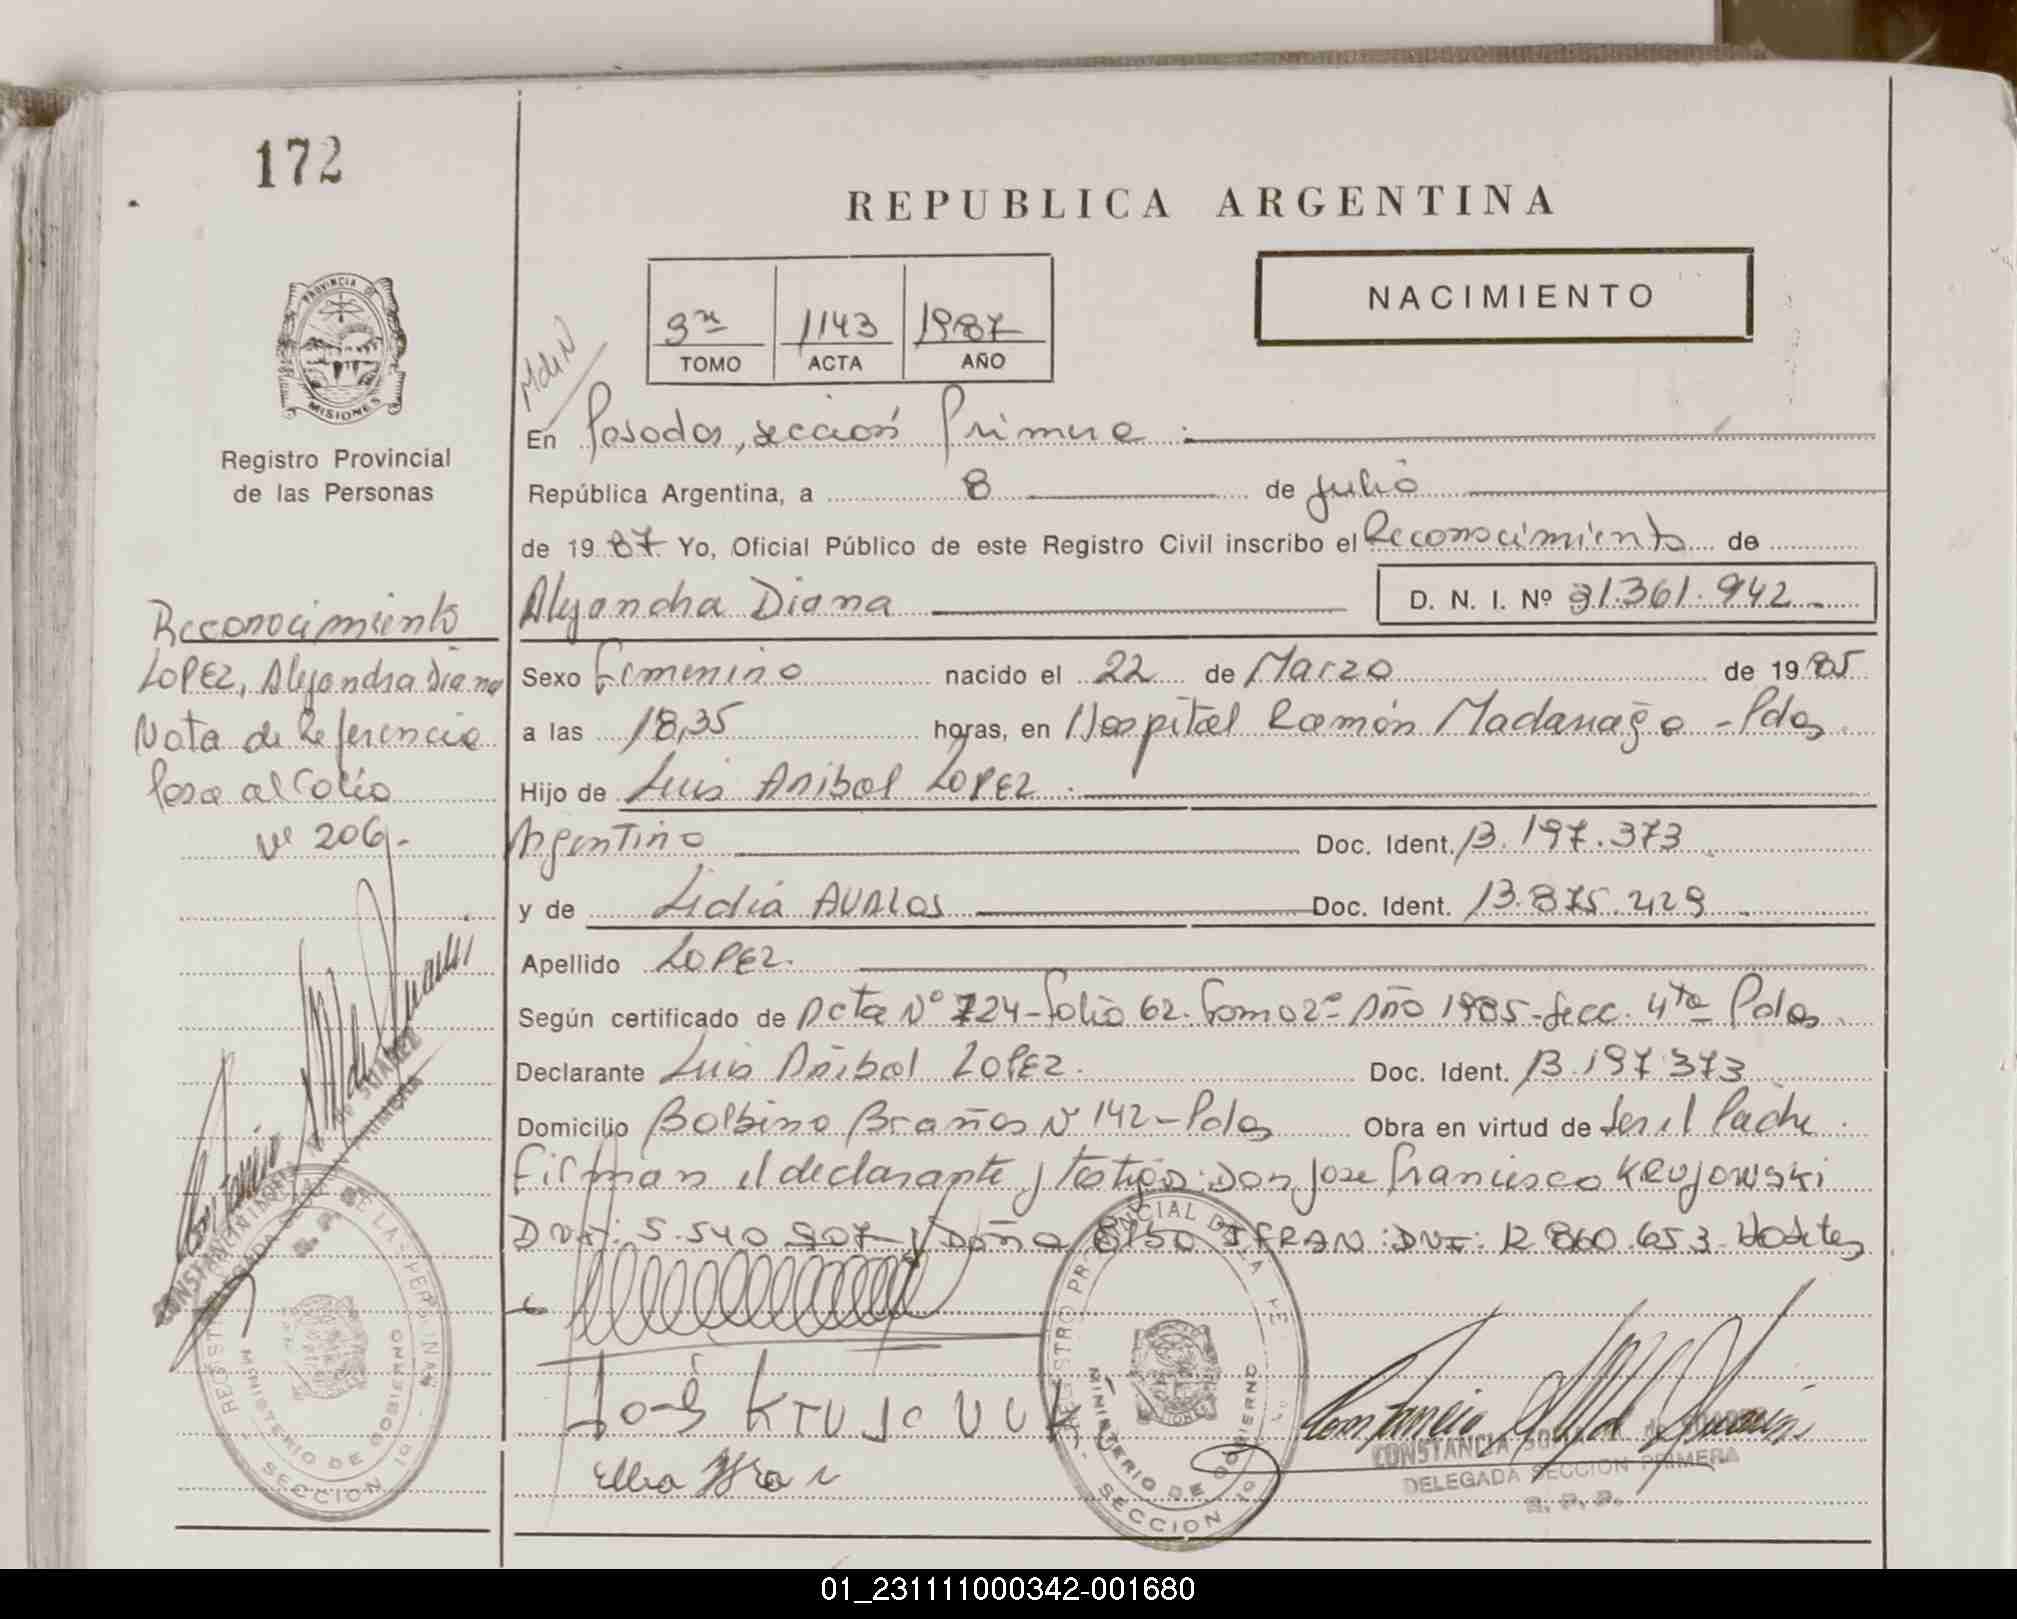 172
REPUBLICA ARGENTINA
NACIMIENTO
1143 1987
TOMO ACTA AÑO
PROVINCIA DE MISIONES
Registro Provincial
de las Personas
En Posadas, sección Primera
República Argentina, a 8 de julio
de 1987. Yo, Oficial Público de este Registro Civil inscribo el Reconocimiento de
Alejandra Diana D. N. I. Nº 31.361.942
Reconocimiento
LOPEZ, Alejandra Diana
Nota de Referencia
Pasa al Folio
Nº 206.-
Sexo Femenino nacido el 22 de Marzo de 1985
a las 18,35 horas, en Hospital Ramón Madariaga - Pdas
Hijo de Luis Anibal LOPEZ.
Argentino Doc. Ident. 13.197.373
y de Lidia AVALOS Doc. Ident. 13.875.429
Apellido LOPEZ.
Según certificado de Acta Nº 724 - folio 62. Tomo 2º Año 1985 - Secc. 4ta Pdas.
Declarante Luis Anibal LOPEZ. Doc. Ident. 13.197.373
Domicilio Balbino Brañas Nº 142 - Pdas Obra en virtud de Ser el Padre.
Firman el declarante y testigos: Don Jose Francisco KRUJOWSKI
DNI: 5.540.907 y Doña IFRAN: DNI: 12.860.653.
REGISTRO PROVINCIAL DE LAS PERSONAS
MINISTERIO DE GOBIERNO
SECCION 1º
REGISTRO PROVINCIAL DE LA PE
MINISTERIO DE GOBIERNO
SECCION 1º
CONSTANCIA de SUAREZ
DELEGADA SECCION PRIMERA
R. P. P.
01_231111000342-001680